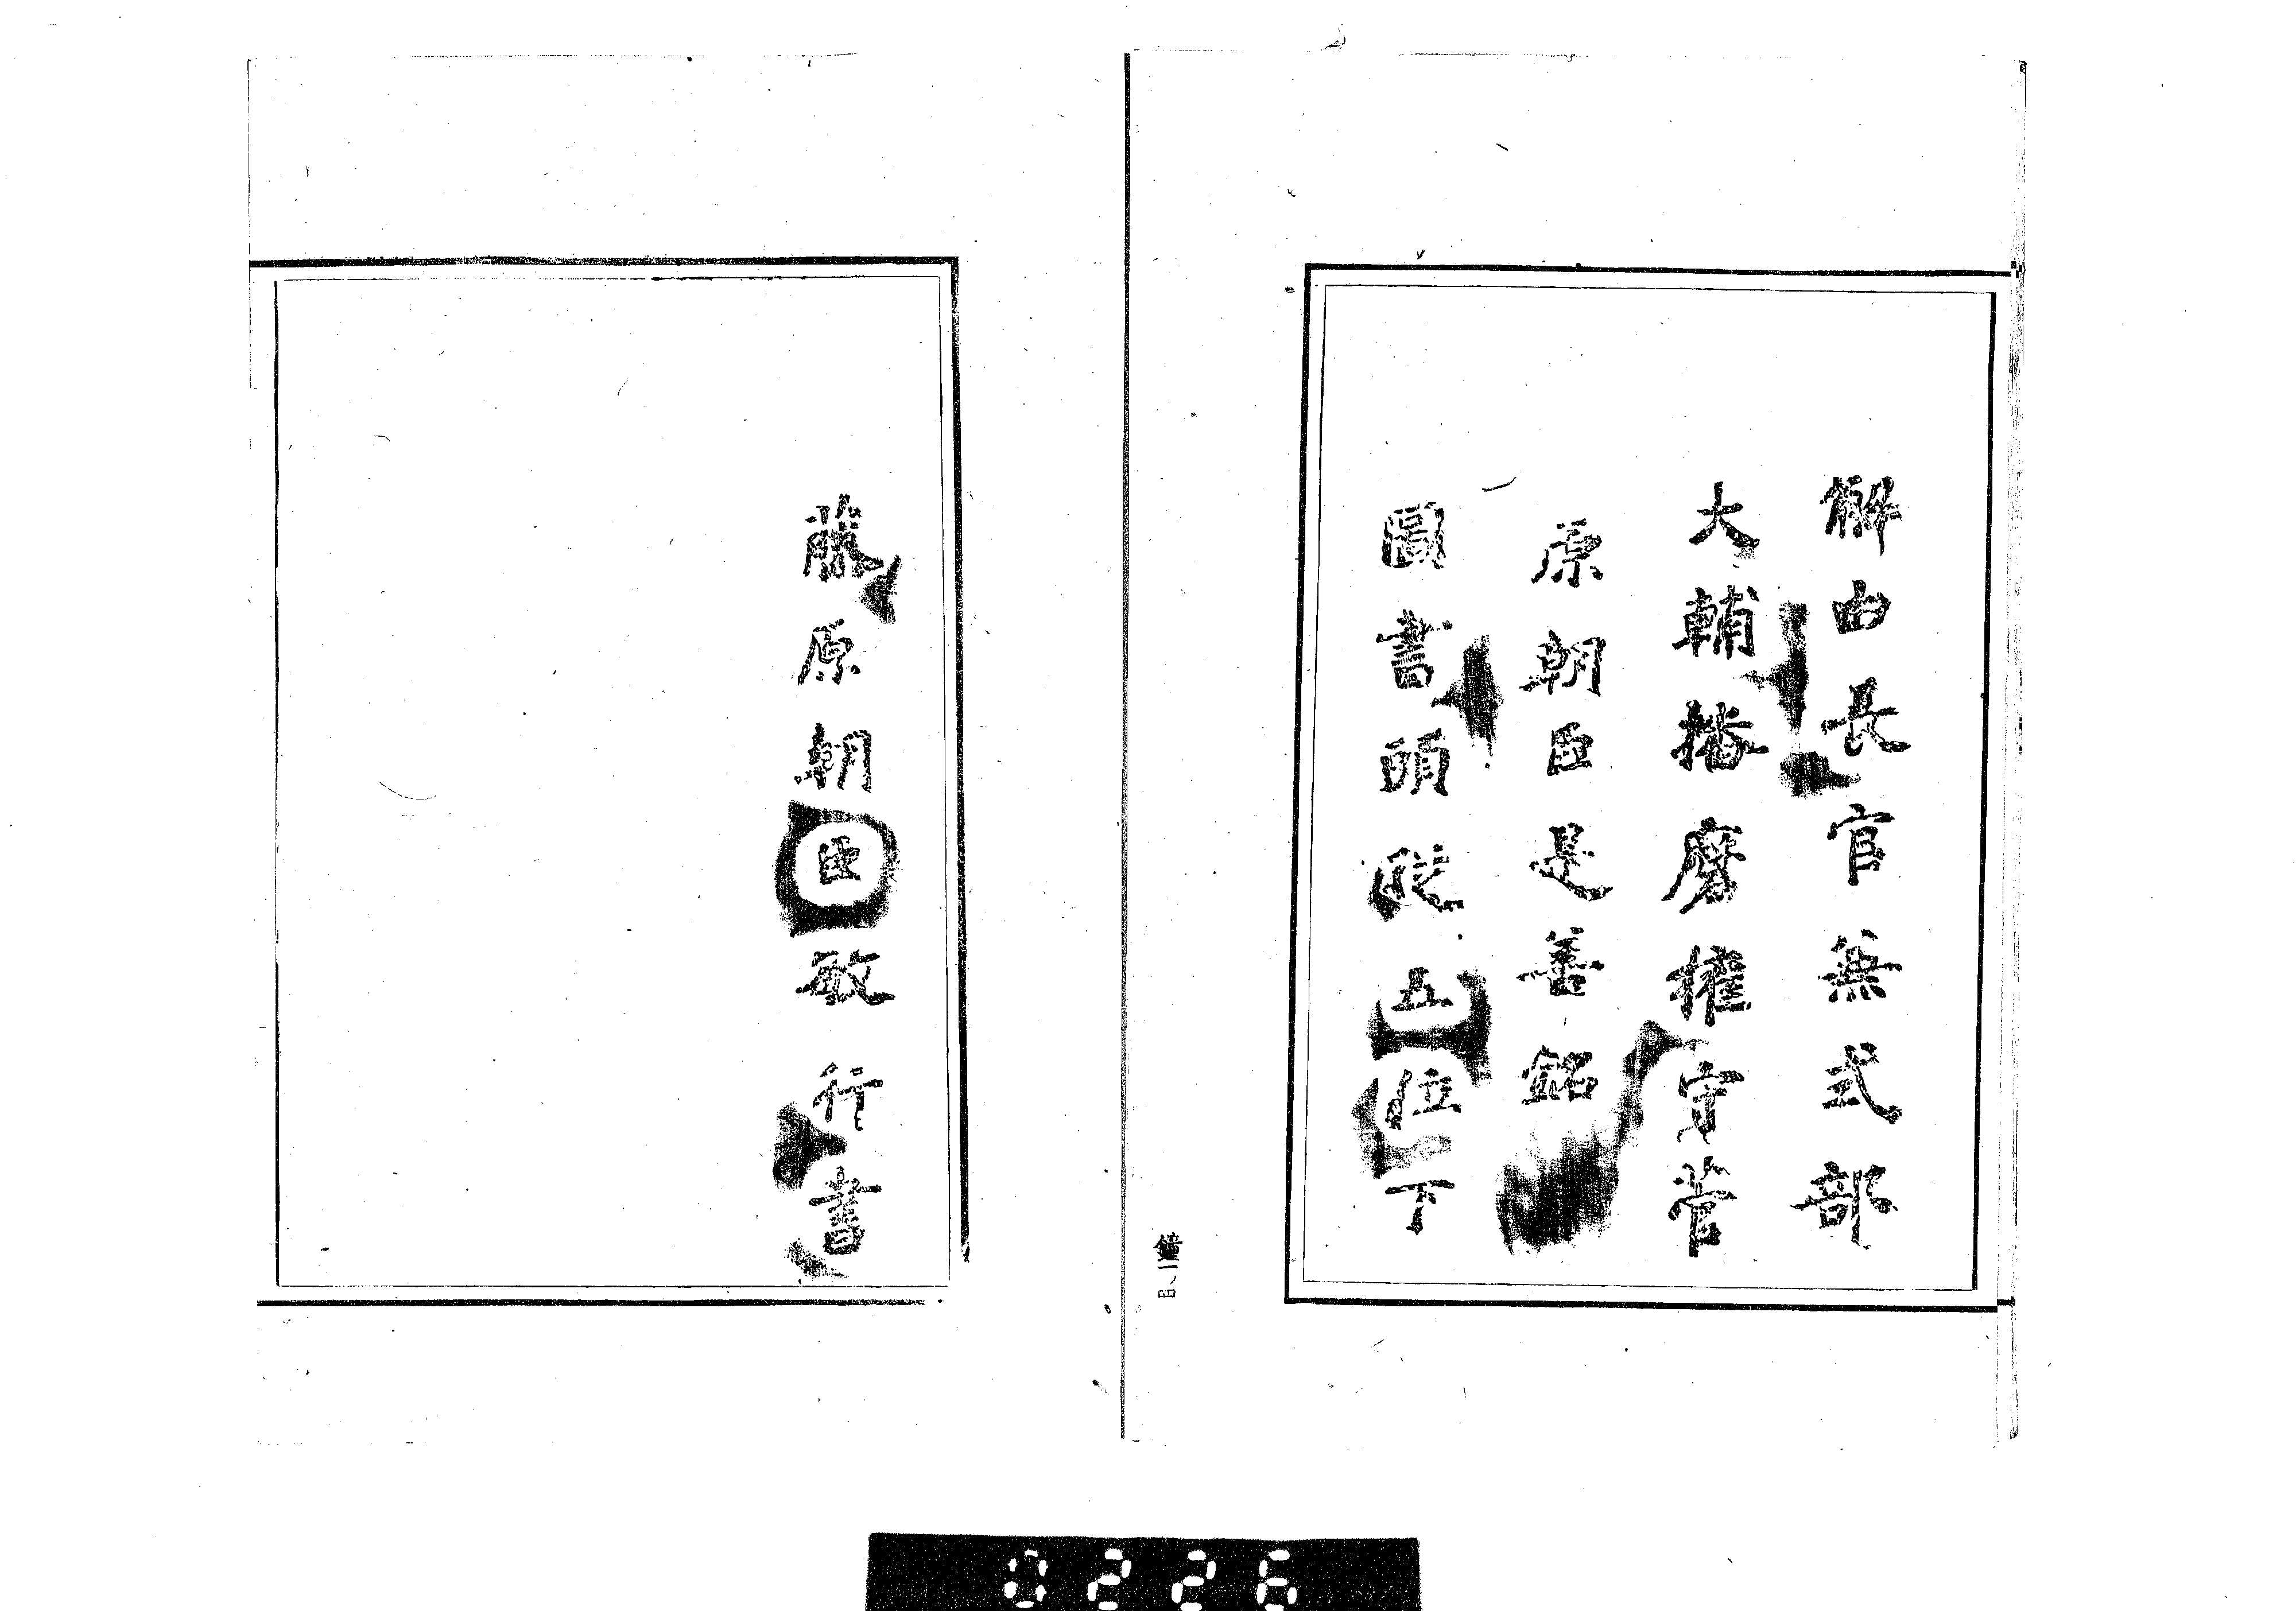 解由長官兼式部
大輔播磨權守菅
原朝臣是善銘
圖書頭從五位下
藤原朝臣敏行書
鐘一
0226